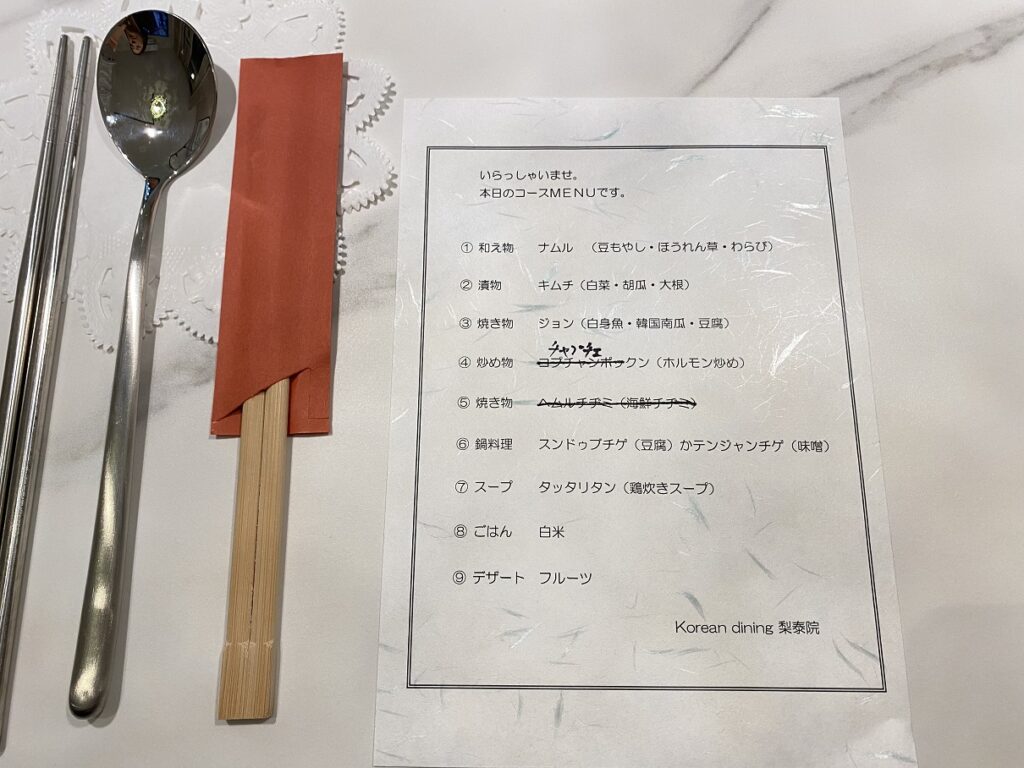 いらっしゃいませ。
本日のコースMENUです。
① 和え物 ナムル （豆もやし・ほうれん草・わらび）
② 漬物 キムチ（白菜・胡瓜・大根）
③ 焼き物 ジョン（白身魚・韓国南瓜・豆腐）
チャプチェ
④ 炒め物 コプチャンポックン（ホルモン炒め）
⑤ 焼き物 ヘムルチヂミ（海鮮チヂミ）
⑥ 鍋料理 スンドゥブチゲ（豆腐）かテンジャンチゲ（味噌）
⑦ スープ タッタリタン（鶏炊きスープ）
⑧ ごはん 白米
⑨ デザート フルーツ
Korean dining 梨泰院